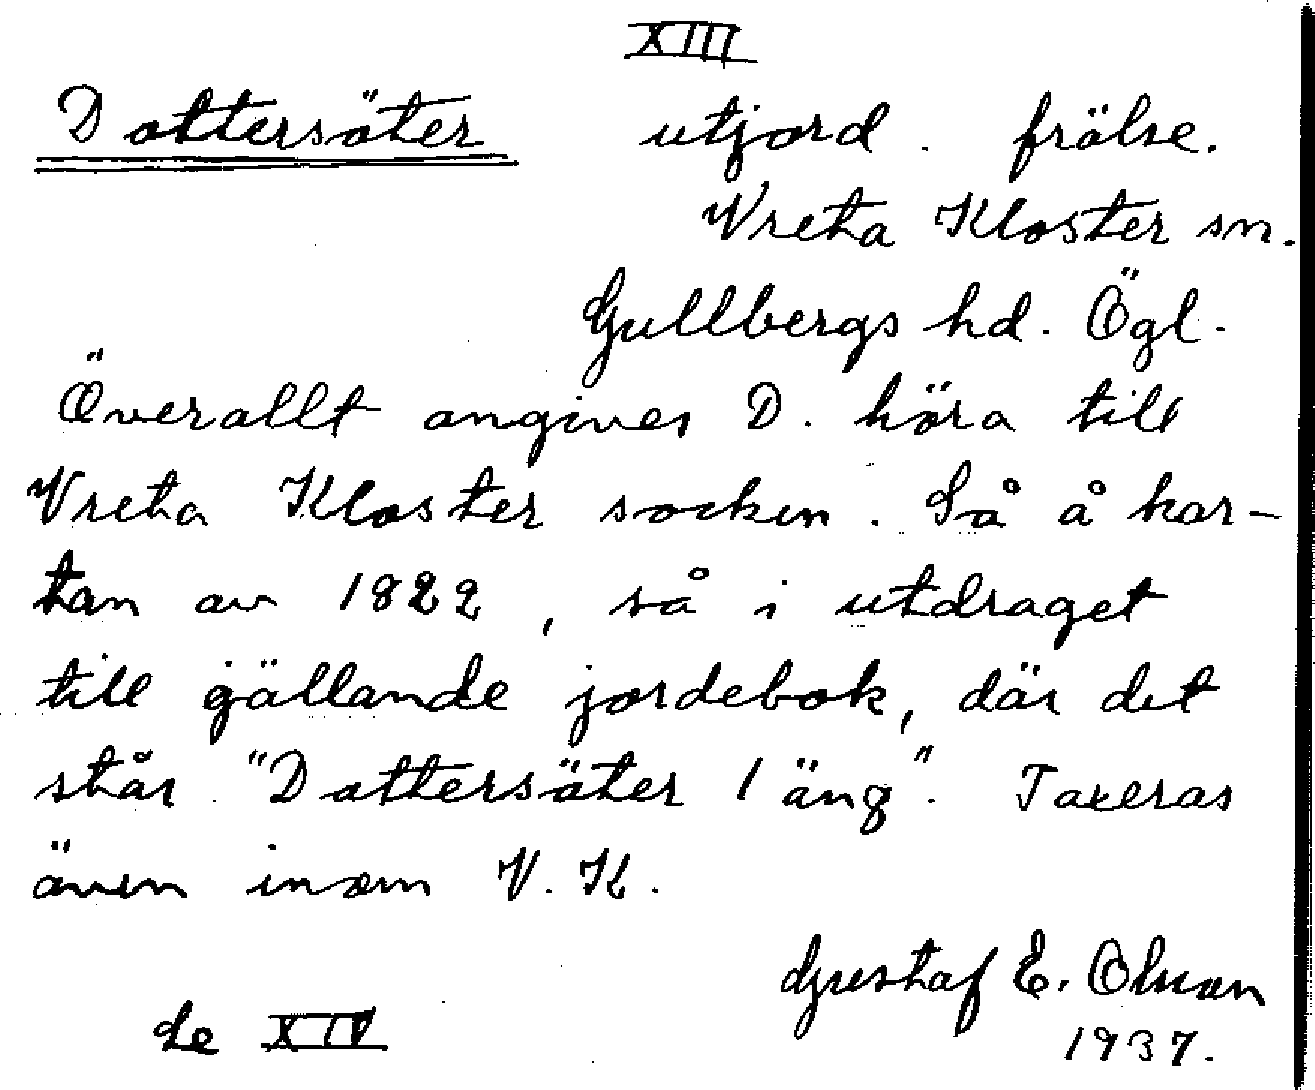 XIII
Dottersäter utjord. frälse.
Vreta Kloster sn.
Gullbergs hd. Ögl.
Överallt angives D. höra till
Vreta Kloster socken. Så å kar-
tan av 1822, så i utdraget
till gällande jordebok, där det
står "Dottersäter 1 äng". Taxeras
även inom V. K.
Gustaf E. Olsson
Se XIV 1937.